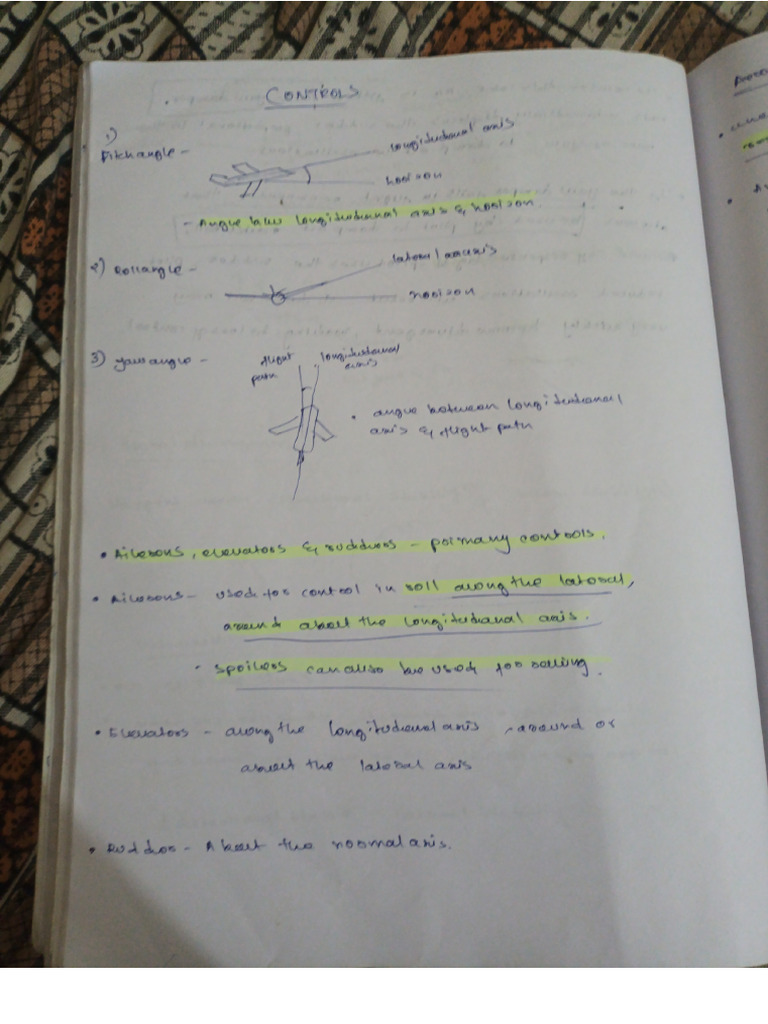 CONTROLS
1)
Pitch angle -
longitudinal axis
horizon
- Angle b/w longitudinal axis & horizon.
2) Roll angle -
lateral axis
horizon
3) yaw angle -
flight path
longitudinal axis
• angle between longitudinal
axis & flight path
• Ailerons, elevators & rudders - primary controls.
• Ailerons - used for control in roll along the lateral,
around about the longitudinal axis.
- Spoilers can also be used for rolling.
• Elevators - along the longitudinal axis, around or
about the lateral axis
• Rudder - About the normal axis.